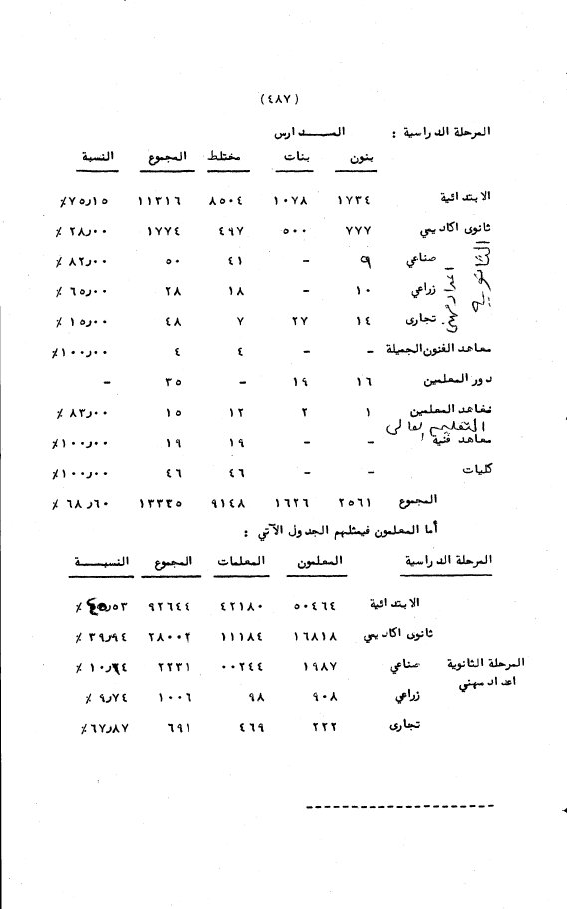 (٤٨٧)
المرحلة الدراسية : المـــدارس
بنون بنات مختلط المجموع النسبة
الابتدائية ١٧٣٤ ١٠٧٨ ٨٥٠٤ ١١٣١٦ ٧٥ر١٥٪
ثانوى اكاديمي ٧٧٧ ٥٠٠ ٤٩٧ ١٧٧٤ ٢٨ر٠٠ ٪
الثانوية
اعداد مهني
صناعي ٩ – ٤١ ٥٠ ٨٢ر٠٠ ٪
زراعي ١٠ – ١٨ ٢٨ ٦٥ر٠٠ ٪
تجارى ١٤ ٢٧ ٧ ٤٨ ١٥ر٠٠ ٪
معاهد الفنون الجميلة – – ٤ ٤ ١٠٠ر٠٠٪
دور المعلمين ١٦ ١٩ – ٣٥ –
معاهد المعلمين ١ ٢ ١٢ ١٥ ٨٣ر٠٠ ٪
التعليم العالى
معاهد فنية – – ١٩ ١٩ ١٠٠ر٠٠٪
كليات – – ٤٦ ٤٦ ١٠٠ر٠٠٪
المجموع ٢٥٦١ ١٦٢٦ ٩١٤٨ ١٣٣٣٥ ٦٨ر٦٠ ٪
أما المعلمون فيمثلهم الجدول الآتي :
المرحلة الدراسية المعلمون المعلمات المجموع النسبـــة
الابتدائية ٥٠٤٦٤ ٤٢١٨٠ ٩٢٦٤٤
ثانوى اكاديمي ١٦٨١٨ ١١١٨٤ ٢٨٠٠٢ ٣٩ر٩٤ ٪
المرحلة الثانوية صناعي ١٩٨٧ ٠٠٢٤٤ ٢٢٣١
اعداد مهني زراعي ٩٠٨ ٩٨ ١٠٠٦ ٩ر٧٤ ٪
تجارى ٢٢٢ ٤٦٩ ٦٩١ ٦٧ر٨٧ ٪